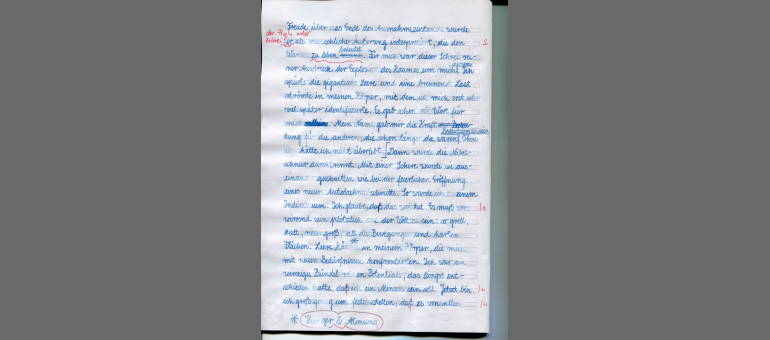 Freude über das Ende des Ausnahmezustands wurde
er als menschlicher Äußerung interpretiert, die den
zu leben bedeutet. Für mich war dieser Schrei
Ausdruck der Explosion des Raumes um mich. Ich
spürte die gigantische Leere und eine brennende Last
strömte in meinen Körper, mit dem ich mich erst
viel später identifizierte. Es gab schon ein Wort für
mich. Mein Name gab mir die Kraft
die anderen, die schon länger da waren. Ohne
hätte ich nicht überlebt. Dann wurde die Nabel-
schnur durchtrennt. Mit einer Schere wurde sie aus-
einander geschnitten wie bei der feierlichen Eröffnung
eines neuen Autobahnabschnitts. So wurde ich einem
Ich glaube, daß das weh tut. Es muß ver-
wirrend sein plötzlich der Welt zu sein: so grell,
kalt, riesengroß, all die Bewegungen und harten
Flächen. Leere * in meinem Körper, die mich
mit neuen Bedürfnissen konfrontierten. Ich war ein
winziges Bündel Potential, das längst ent-
schieden hatte, daß ich ein Mensch sein soll. Jetzt bin
ich groß genug um festzustellen, daß es von allen
* Hunger & Atmung